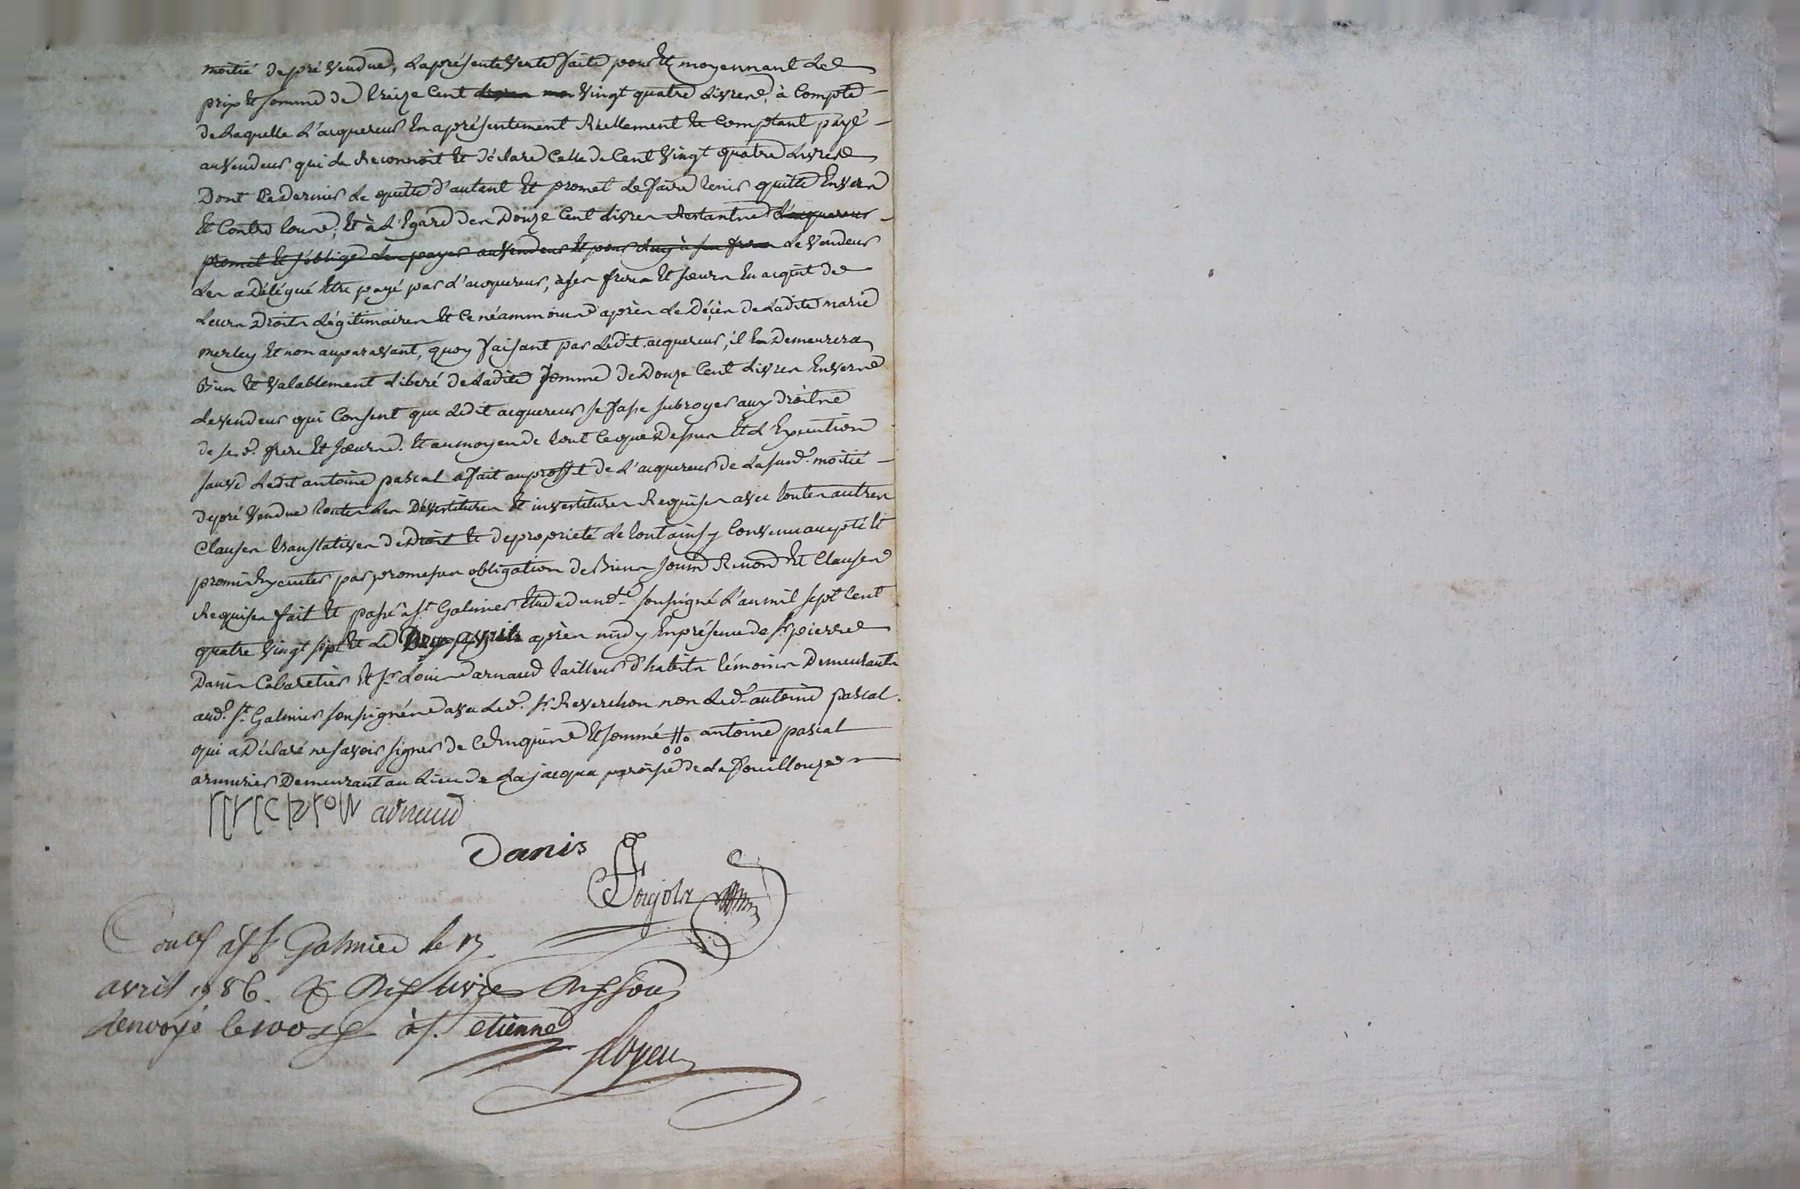 moitié de pré vendue, la présente vente faite pour et moyennant le
prix et somme de treize cent vingt quatre livres, à compte
de laquelle l'acquereur en a présentement réellement et comptant payé
au vendeur qui le reconnoit et déclare celle de cent vingt quatre livres
dont ce dernier le quitte d'autant et promet le faire tenir quitte envers
et contre tous, et à l'égard des douze cent livres restantes l'acquereur
promet et s'oblige les payer au vendeur et pour luy à ses freres le vendeur
les a délégué être payé par l'acquereur, à ses freres et soeurs en acquit de
leurs droits légitimaires et ce néammoins après le décès de ladite marie
merley et non auparavant, quoy faisant par ledit acquereur, il en demeurera
bien et valablement libéré de ladite somme de douze cent livres envers
le vendeur qui consent que ledit acquereur se fasse subroger aux droits
de sesd. freres et soeurs. et au moyen de tout ce que dessus et l'execution
sauve ledit antoine pascal a fait au proffit de l'acquereur de la susd. moitié
de pré vendue toutes les dévestitures et investitures requises avec toutes autres
clauses translatives de droit et de propriété le tout ainsy convenu accepté et
promis executer par promesses obligation de biens soum. renon. et clauses
requises fait et passé à St Galmier etude du nre. soussigné l'an mil sept cent
quatre vingt six et le avril après midy en présence de sr. pierre
Danis cabaretier et sr. Louis arnaud tailleur d'habits témoins demeurants
aud. St. Galmier soussignés avec led. sr. Reverchon non led. antoine pascal
qui a déclaré ne savoir signer de ce enquis et sommé antoine pascal
armurier demeurant au lieu de la jacqua paroisse de la fouillouze
reverchon arnaud
Danis
Pourjols
Con.lé à St. Galmier le 13
avril 1786. R. dix livres dix sous
renvoyé le 100e à St. etienne